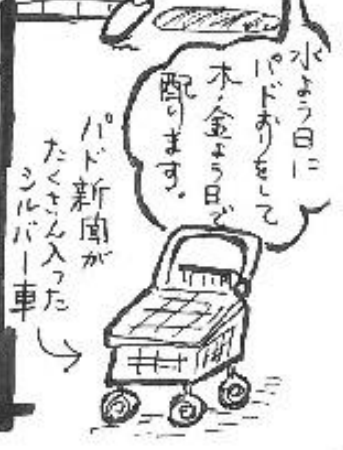 水よう日に
パドおりをして
木・金よう日で
配ります。
パド新聞が
たくさん入った
シルバー車